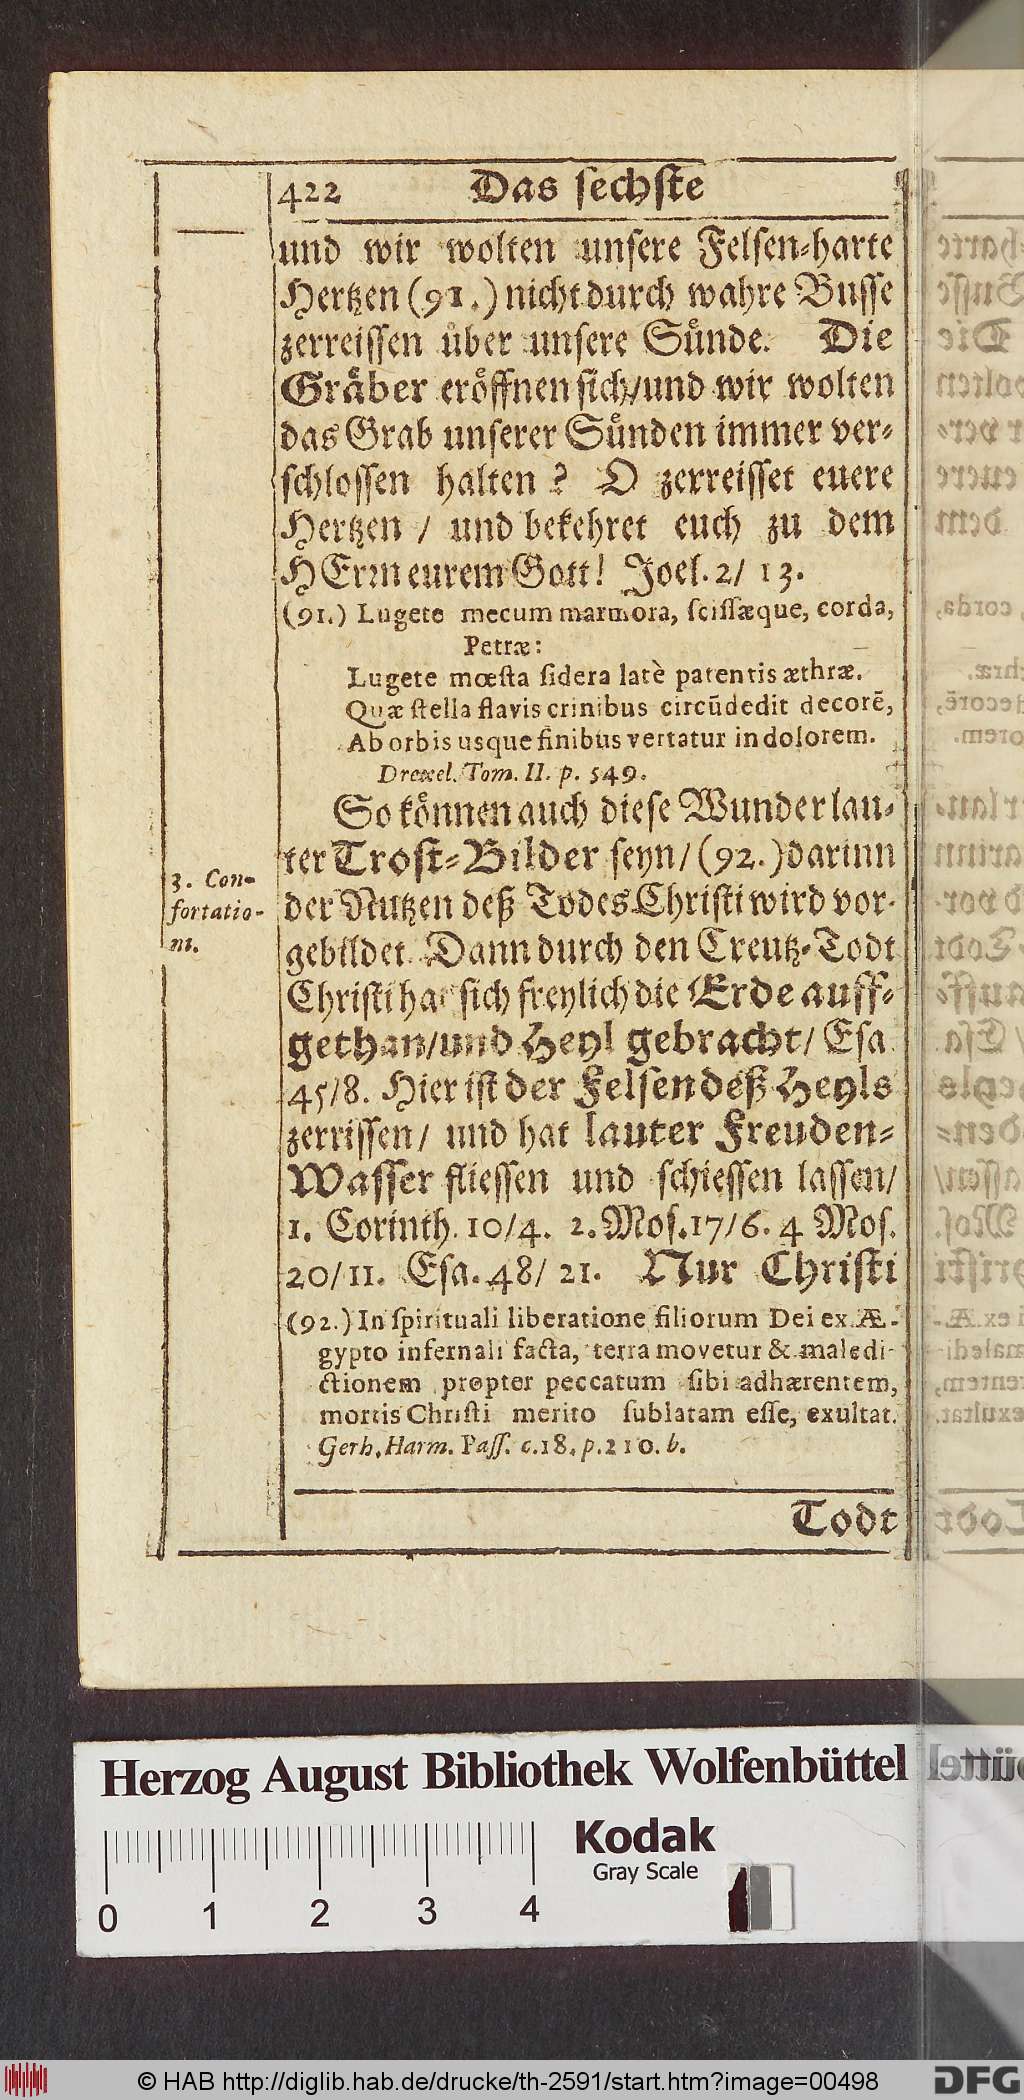 422 Das sechste
und wir wolten unsere Felsen-harte
Hertzen (91.) nicht durch wahre Busse
zerreissen uͤber unsere Suͤnde. Die
Graͤber eroͤffnen sich/und wir wolten
das Grab unserer Suͤnden immer ver-
schlossen halten? O zerreisset euere
Hertzen / und bekehret euch zu dem
HErrn eurem Gott! Joel. 2/ 13.
(91.) Lugete mecum marmora, scissæque, corda,
Petræ:
Lugete mœsta sidera latè patentis æthræ.
Quæ stella flavis crinibus circũdedit decorẽ,
Ab orbis usque finibus vertatur in dolorem.
Drexel. Tom. II. p. 549.
So koͤnnen auch diese Wunder lau-
ter Trost-Bilder seyn/ (92.) darinn
3. Con-
fortatio-
ni.
der Nutzen deß Todes Christi wird vor-
gebildet. Dann durch den Creutz-Todt
Christi hat sich freylich die Erde auff-
gethan/und Heyl gebracht/ Esa.
45/8. Hier ist der Felsen deß Heyls
zerrissen/ und hat lauter Freuden-
Wasser fliessen und schiessen lassen/
1. Corinth. 10/4. 2. Mos. 17/6. 4 Mos.
20/11. Esa. 48/ 21. Nur Christi
(92.) In spirituali liberatione filiorum Dei ex Æ-
gypto infernali facta, terra movetur & maledi-
ctionem propter peccatum sibi adhærentem,
mortis Christi merito sublatam esse, exultat.
Gerh. Harm. Pass. c. 18. p. 210. b.
Todt
Herzog August Bibliothek Wolfenbüttel
Kodak
Gray Scale
0 1 2 3 4
© HAB http://diglib.hab.de/drucke/th-2591/start.htm?image=00498
DFG